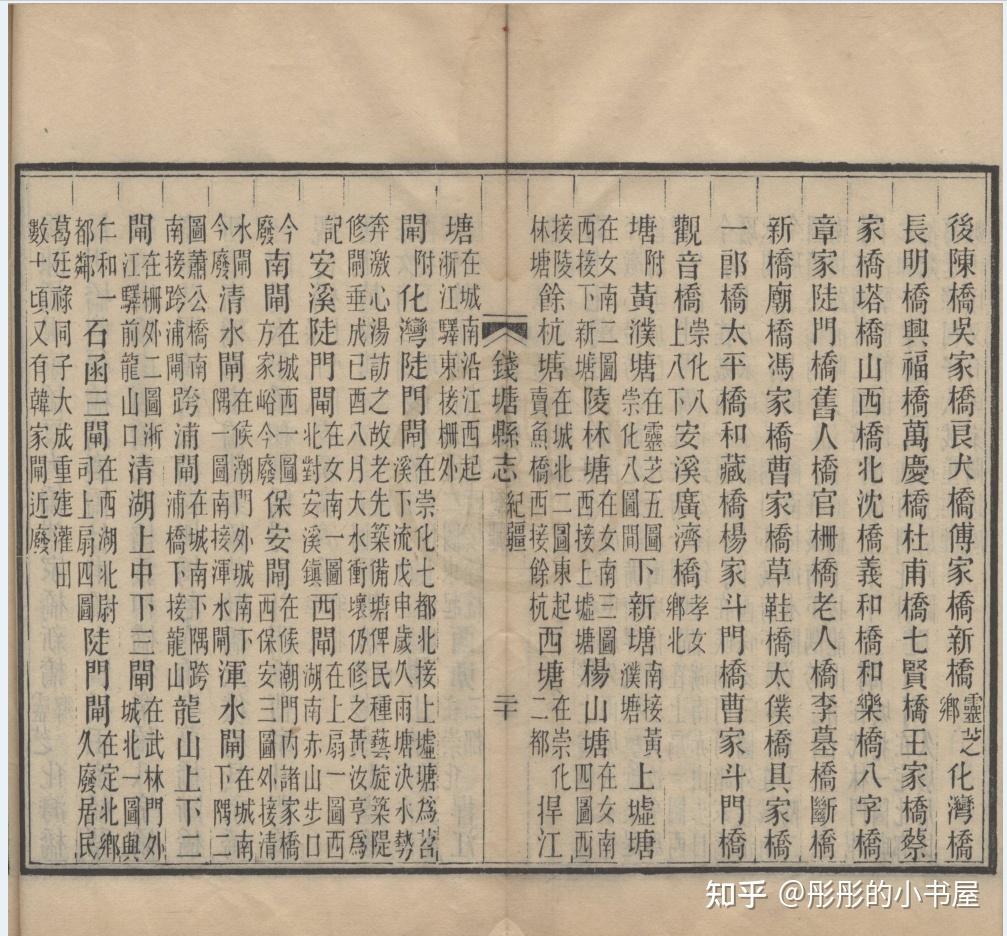 後陳橋吳家橋良犬橋傅家橋新橋靈芝鄉化灣橋
長明橋興福橋萬慶橋杜甫橋七賢橋王家橋蔡
家橋塔橋山西橋北沈橋義和橋和樂橋八字橋
章家陡門橋舊人橋官柵橋老人橋李墓橋斷橋
新橋廟橋馮家橋曹家橋草鞋橋太僕橋具家橋
一郎橋太平橋和藏橋楊家斗門橋曹家斗門橋
觀音橋崇化八上八下安溪廣濟橋孝女鄉北
塘附黃濮塘在靈芝五圖崇化八圖間下新塘南接黃濮塘上墟塘
在女南二圖西接下新塘陵林塘在女南三圖西接上墟塘楊山塘在女南四圖西
接陵林塘餘杭塘在城北二圖東起賣魚橋西接餘杭西塘在崇化二都捍江
錢塘縣志 紀疆 二十
塘在城南沿江西起浙江驛東接柵外
閘附化灣陡門閘在崇化七都北接上墟塘為苕溪下流戊申歲久雨塘決水勢
奔激心湯訪之故老先築備塘俾民種藝旋築隄修閘垂成已酉八月大水衝壞仍修之黃汝亨為
記安溪陡門閘在女南一圖北對安溪鎮西閘在上扇一圖西湖南赤山步口
今廢南閘在城西一圖方家峪今廢保安閘在候潮門內諸家橋西保安三圖外接清
水閘今廢清水閘在候潮門外城南下隅一圖南接渾水閘渾水閘在城南下隅二
圖蕭公橋南南接跨浦閘跨浦閘在城南下隅跨浦橋下接龍山龍山上下二
閘在柵外二圖浙江驛前龍山口清湖上中下三閘在武林門外城北一圖與
仁和一都鄰石函三閘在西湖北尉司上扇四圖陡門閘在定北鄉久廢居民
葛廷祿同子大成重建灌田數十頃又有韓家閘近廢
知乎 @彤彤的小书屋